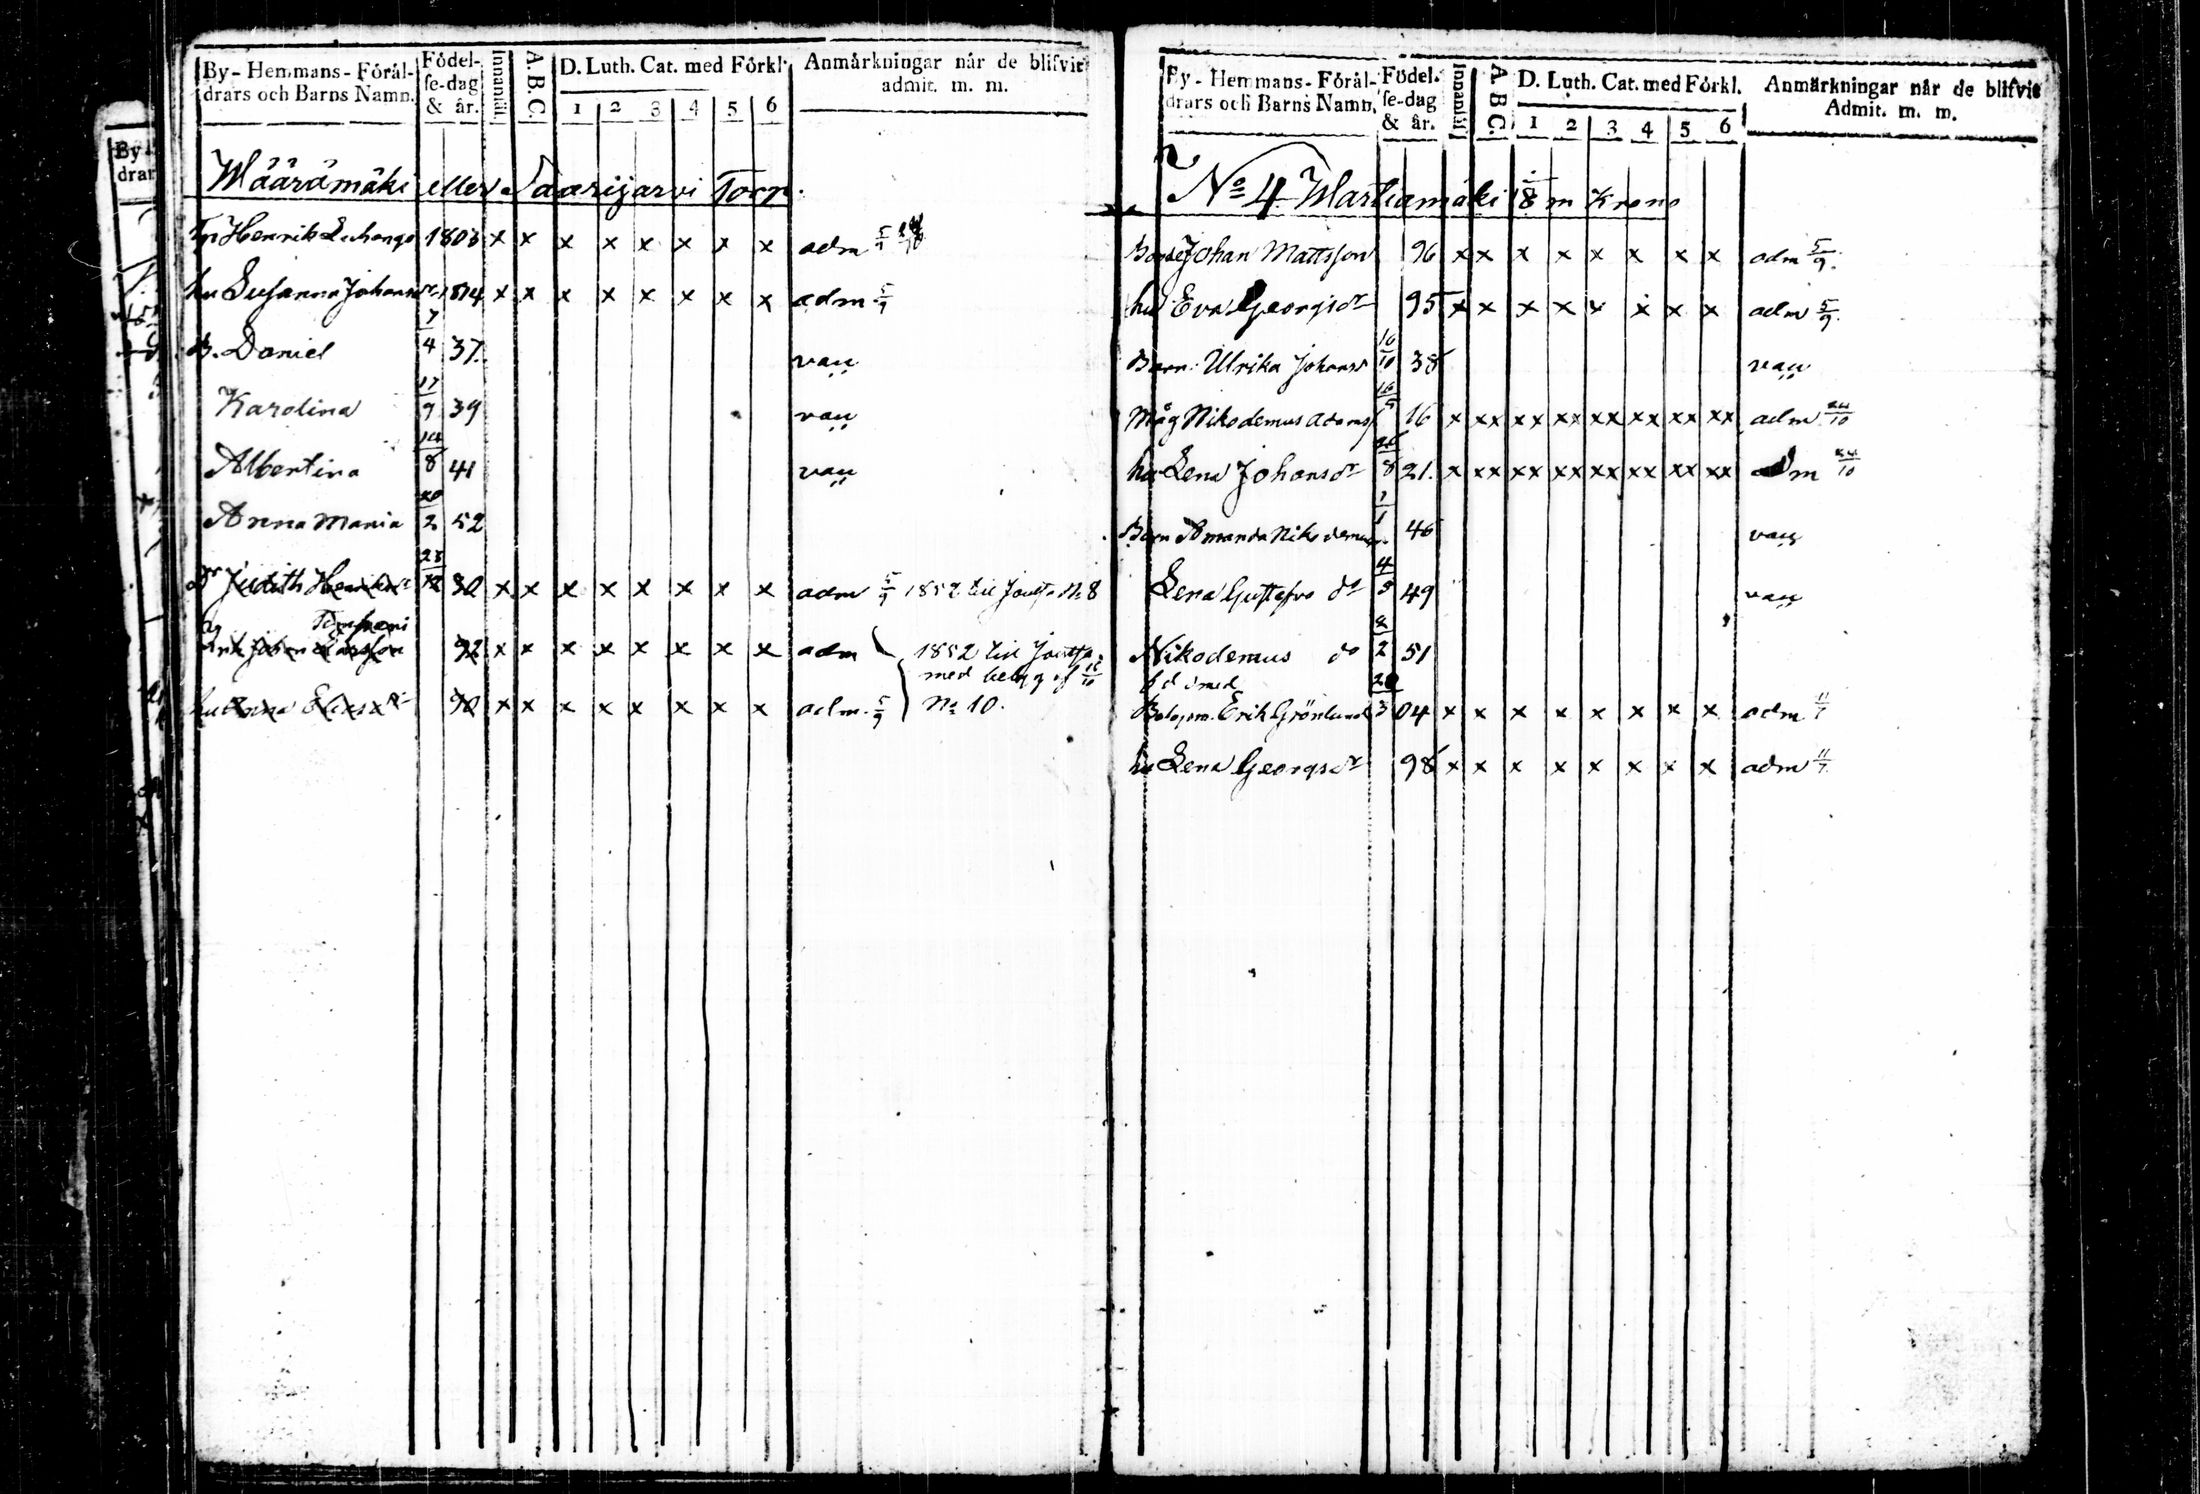 By- Hemmans- Föräl-
drars och Barns Namn.
Födel-
se-dag
& år.
Innantil.
A.B.C.
D. Luth. Cat. med Förkl.
1 2 3 4 5 6
Anmärkningar när de blifvit
admit. m. m.
Määrämäki eller Saarijarvi Torp.
Henrik 1803 x x x x x x x x adm 5/9
hu Susanna Johansdr 1814 x x x x x x x x adm 5/9
B. Daniel 7/4 37. vac
Karolina 17/9 39 vac
Albertina 14/8 41 vac
Anna Maria 20/2 52
Dr Judith 23/12 30 x x x x x x x x adm 5/9 1852 till No 8
Johan Larsson 92 x x x x x x x x adm 1852 till
med
hu Anna 90 x x x x x x x x adm. 5/9 No 10.
By- Hemmans- Föräl-
drars och Barns Namn.
Födel-
se-dag
& år.
Innantil
A.B.C.
D. Luth. Cat. med Förkl.
1 2 3 4 5 6
Anmärkningar när de blifvit
Admit. m. m.
No 4 Martiamäki 1/8 m Krono
Bonde Johan Mattsson 96 x x x x x x x x adm 5/9.
hu Eva Georgsdr 95 x x x x x x x x adm 5/9.
Barn: Ulrika Johansd 16/10 38 vac
Måg Nikodemus Adamss 16 x xx xx xx xx xx xx xx adm 24/10
hu Lena Johansdr 8 21. x xx xx xx xx xx xx xx adm 24/10
Barn Amanda Nikodemus 1/1 46 vac
Lena Gustafva do 49 vac
Nikodemus do 2 51
f d smed 20
Erik Grönlund 3 04 x x x x x x x x adm 11/7
hu Lena Georgsdr 98 x x x x x x x x adm 11/7